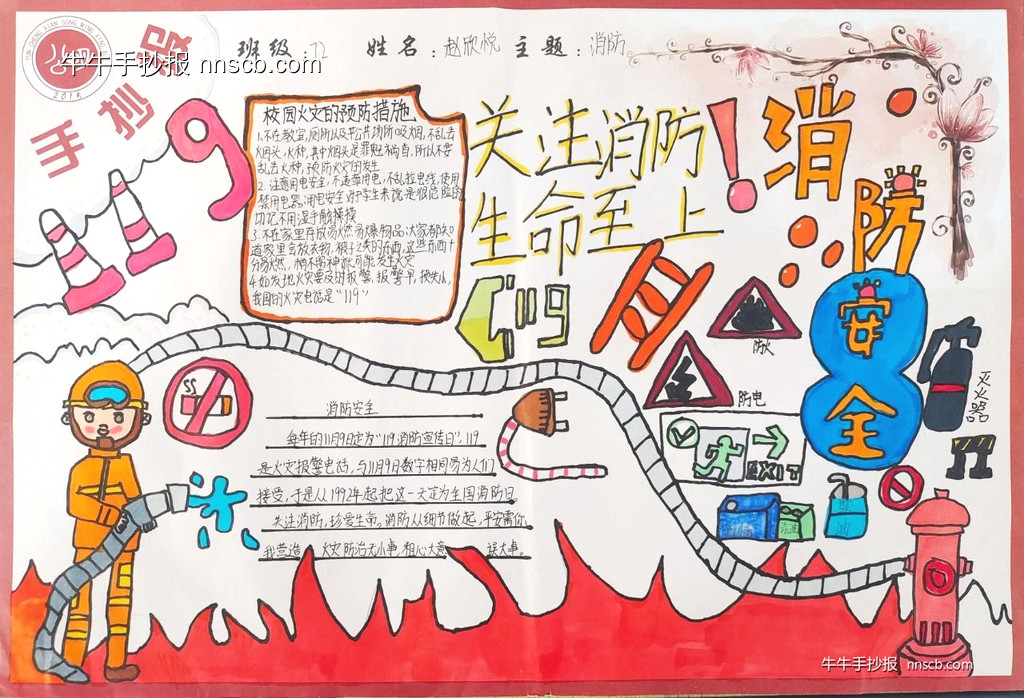 牛牛手抄报 nnscb.com
2015
手抄报
班级：72 姓名：赵欣悦 主题：消防
校园火灾的预防措施
1.不在教室,厕所以及无公共场所吸烟,不乱丢
烟头,火种,其中烟头是罪魁祸首,所以不要
乱丢火种,预防火灾的发生
2.注意用电安全,不违章用电,不乱拉电线,使用
禁用电器.用电安全对于学生来说是很危险的
切记不用湿手触摸
3.不在家里存放易燃易爆物品
4.如发地火灾要及时报警,报警早,损失小,
我国的火灾电话是“119”
关注消防
生命至上
!
119
消防
安全
防火
防电
灭火器
EXIT
消防安全
每年的11月9日定为“119消防宣传日”.119
是火灾报警电话,与11月9日数字相同易为人们
接受,于是从1992年起把这一天定为全国消防日
关注消防,珍爱生命,消防从细节做起,平安需你
我营造 火灾防治无小事 粗心大意 误大事。
牛牛手抄报 nnscb.com